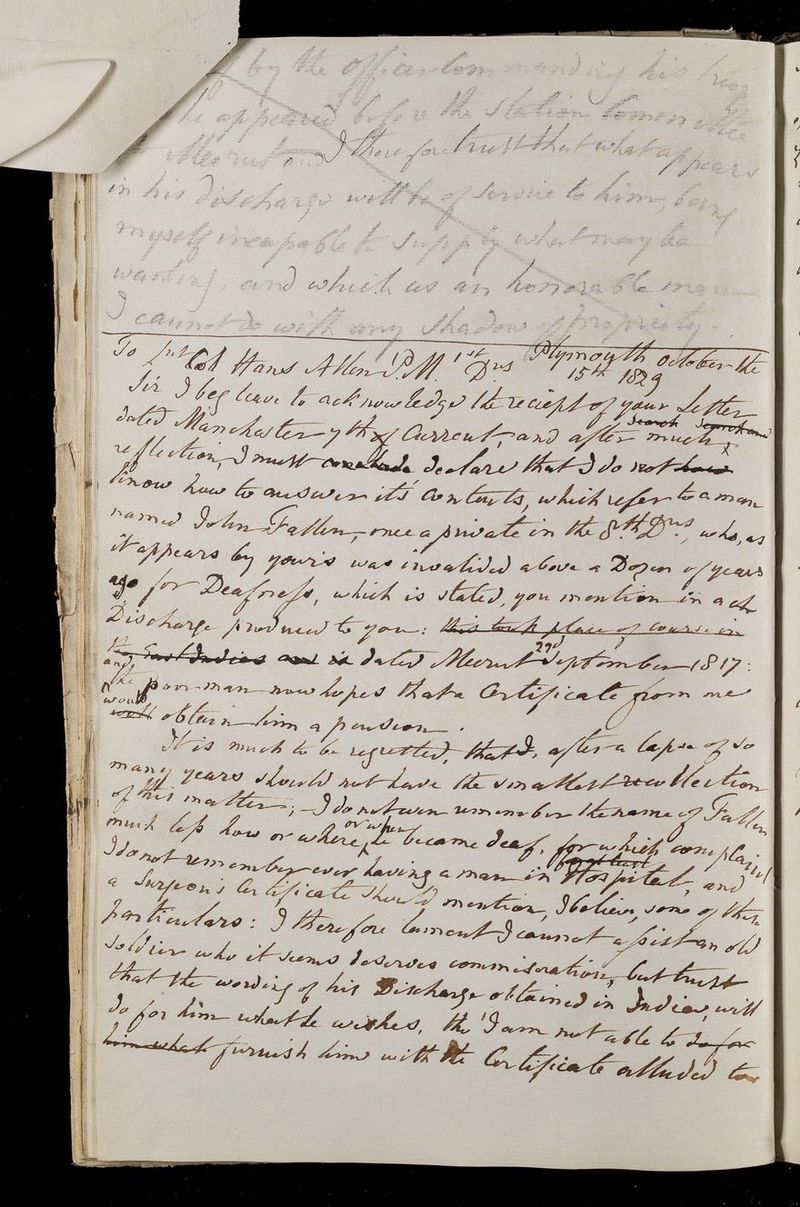 by the officer commanding his troop
he appeared before the Station Committee
Meerut I therefore trust that what appears
in his discharge will be of service to him, being
myself incapable to supply what may be
wanting, and which as an honorable man
I cannot do with any shadow of propriety.
To Lnt Col Hans Allen P.M. 1st Drs Plymouth October the
15th 1829
Sir I beg leave to acknowledge the reciept of your Letter
dated Manchester 7th of Current, and after much search
reflection, I must conclude declare that I do not how
know how to answer it's contents, which refer to a man
named John Fallen, once a private in the 8th Drs, who, as
it appears by yours was invalided above a Dozen of years
ago for Deafness, which is stated, you mention in a
Discharge produced to you: this took place of course in
the East Indies and is dated Meerut 29th September 1817:
and the poor man now hopes that a Certificate from me
would obtain him a pension.
It is much to be regretted, that I, after a lapse of so
many years should not have the smallest recollection
of this matter; I do not even remember the name of Fallen
much less how or where or when he became deaf, for which complaint
I do not remember ever having a man in Hospital, and
a Surgeon's Certificate should mention, I believe, some of these
particulars: I therefore lament I cannot assist an old
soldier who it seems deserves commiseration, but trust
that the wording of his Discharge obtained in India, will
do for him what he wishes, tho' I am not able to do for
him what furnish him with the Certificate alluded to